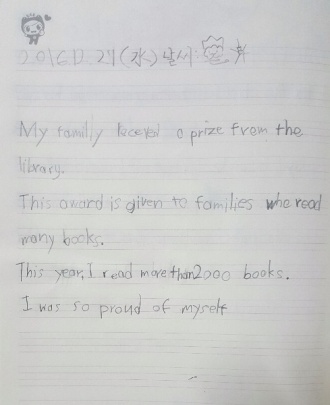 2016.12.29(水) 날씨:
My family receved a prize from the
library.
This award is given to families who read
many books.
This year, I read more than 2000 books.
I was so proud of myself